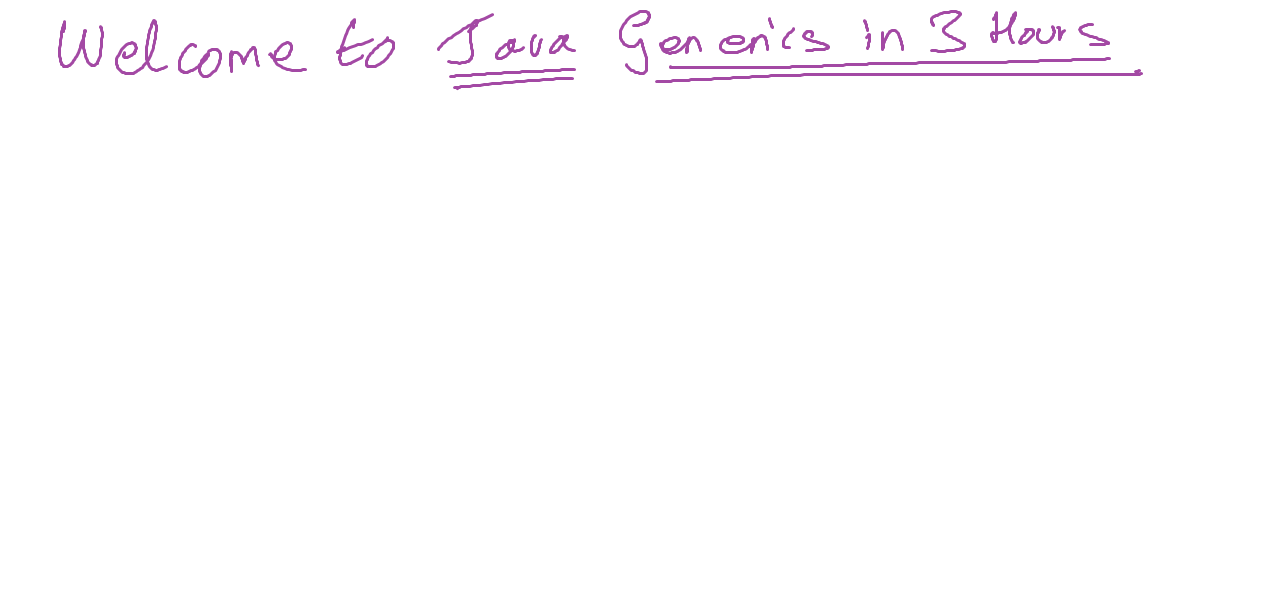 Welcome to Java Generics in 3 Hours